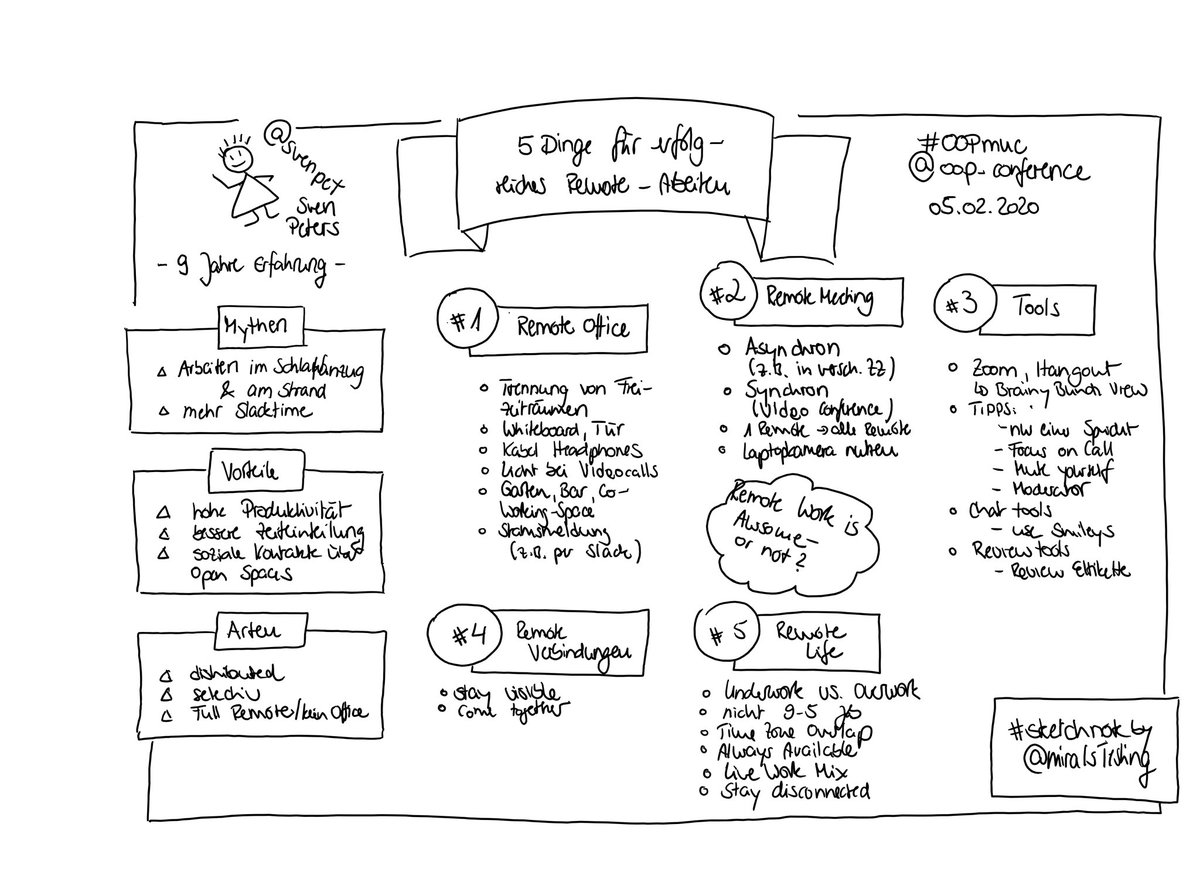 @svenpet
Sven
Peters
- 9 Jahre Erfahrung -
5 Dinge für erfolg-
reiches Remote-Arbeiten
#OOPmuc
@oop_conference
05.02.2020
Mythen
Arbeiten im Schlafanzug
& am Strand
mehr Slacktime
Vorteile
hohe Produktivität
bessere Zeiteinteilung
soziale Kontakte über
Open Spaces
Arten
distributed
selectiv
Full Remote/kein Office
#1 Remote Office
Trennung von Frei-
zeiträumen
Whiteboard, Tür
Kabel Headphones
Licht bei Videocalls
Garten, Bar, Co-
Working-Space
Statusmeldung
(z.B. per Slack)
#2 Remote Meeting
Asynchron
(z.B. in versch. ZZ)
Synchron
(Video Conference)
1 Remote → alle Remote
Laptopkamera nutzen
Remote Work is
Awesome -
or not?
#3 Tools
Zoom, Hangout
↳ Brainy Bunch View
Tipps:
- nur einer spricht
- Focus on Call
- Mute yourself
- Moderator
Chat tools
- use Smileys
Review tools
- Review Etikette
#4 Remote
Verbindungen
stay visible
come together
#5 Remote
Life
Underwork vs. Overwork
nicht 9-5 Job
Time Zone Overlap
Always Available
Live Work Mix
Stay disconnected
#sketchnote by
@miralsTesting